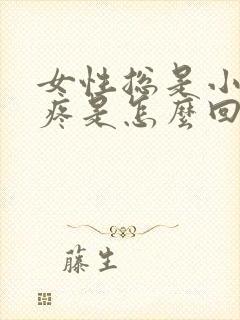 女性总是小
疼是怎麼回
藤生